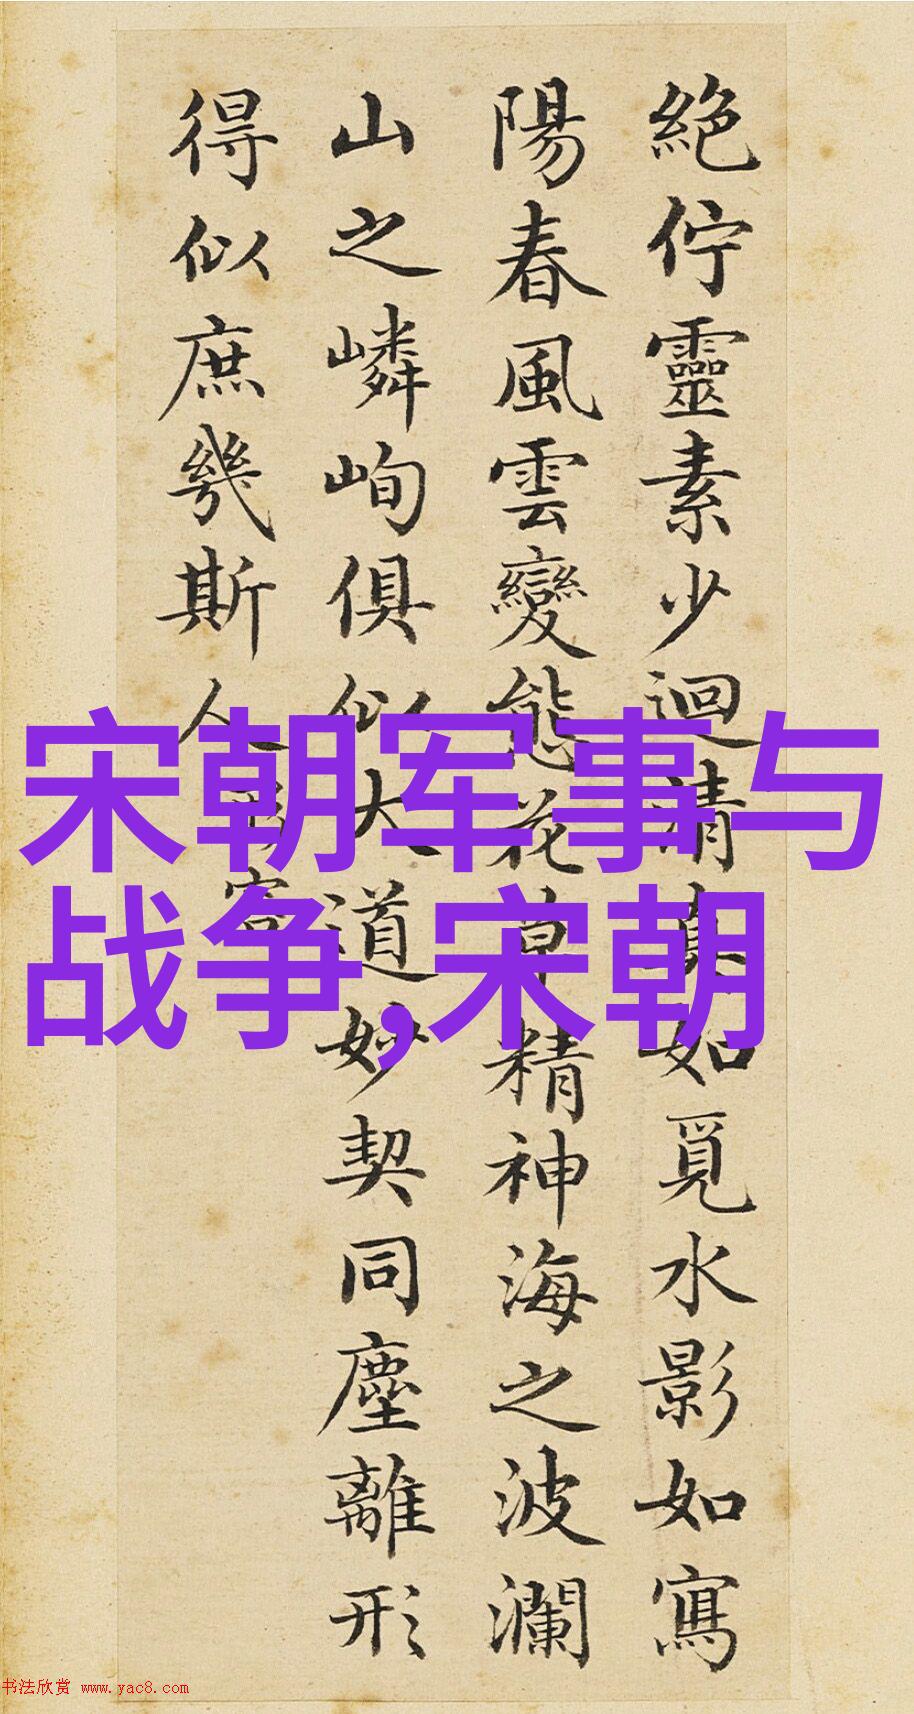 絕佇靈素少迴清真如覓水影如寫
陽春風雲變態花草精神海之波瀾
山之嶙峋俱似大道妙契同塵離形
得似庶幾斯人
形容
宋朝军事与
战争,宋朝
书法欣赏 www.yac8.com